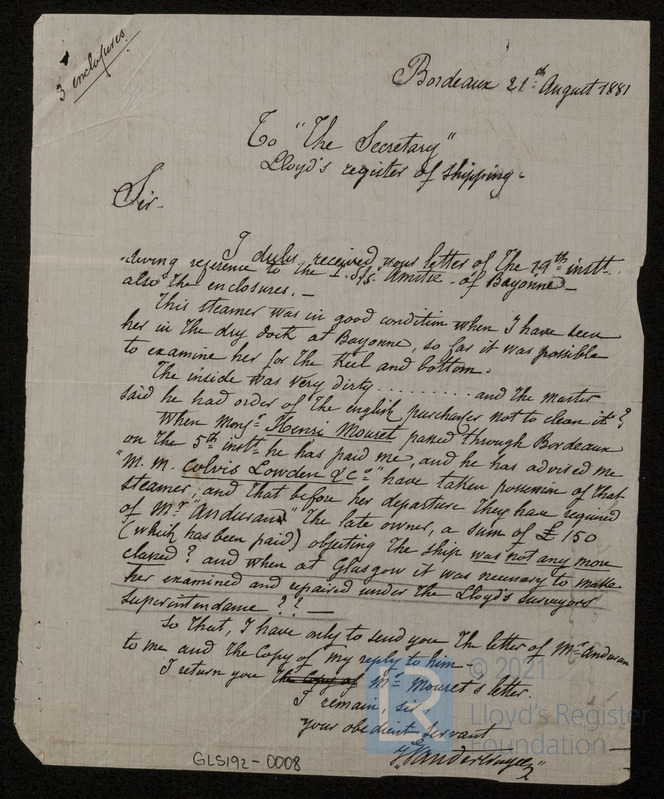 3 enclosures.
Bordeaux 21th August 1881
To "The Secretary"
Lloyd's register of shipping.
Sir.
I duly received your letter of the 19th instt
having reference to the of Bayonne
also the enclosures. —
This steamer was in good condition when I have seen
her in the dry dock at Bayonne, so far it was possible
to examine her for the keel and bottom.
The inside was very dirty .......... and the master
said he had order of the english purchases not to clean it?
When Monsr Henri Mouret passed through Bordeaux
on the 5th instt he has paid me, and he has advised me
"M. M. Colvis Lowden & Co" have taken possession of that
steamer, and that before her departure they have required
of Mr "Anduran" the late owner, a sum of £150
(which has been paid) objecting the ship was not any more
classed? and when at Glasgow it was necessary to make
her examined and repaired under the Lloyd's surveyors
superintendance?? —
So that, I have only to send you the letter of Mr Anduran
to me and the copy of my reply to him —
I return you the copy of Mr Mouret's letter.
I remain, sir
your obedient servant
GLS192-0008
© 2021
Lloyd's Register
Foundation